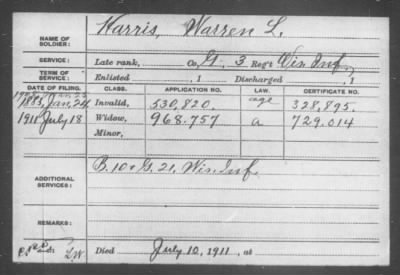 NAME OF SOLDIER: Harris, Warren L.
SERVICE: Late rank, Co. G. 3 Reg't Wis Inf.
TERM OF SERVICE: Enlisted , 1 Discharged , 1
DATE OF FILING. CLASS. APPLICATION NO. LAW. CERTIFICATE NO.
1885, Jan 24 Invalid, 530,820. age 328,895.
1911 July 18 Widow, 968.757 a 729.014
Minor,
ADDITIONAL SERVICES: B. 10 & G. 21, Wis. Inf.
REMARKS:
Died July 10, 1911, at